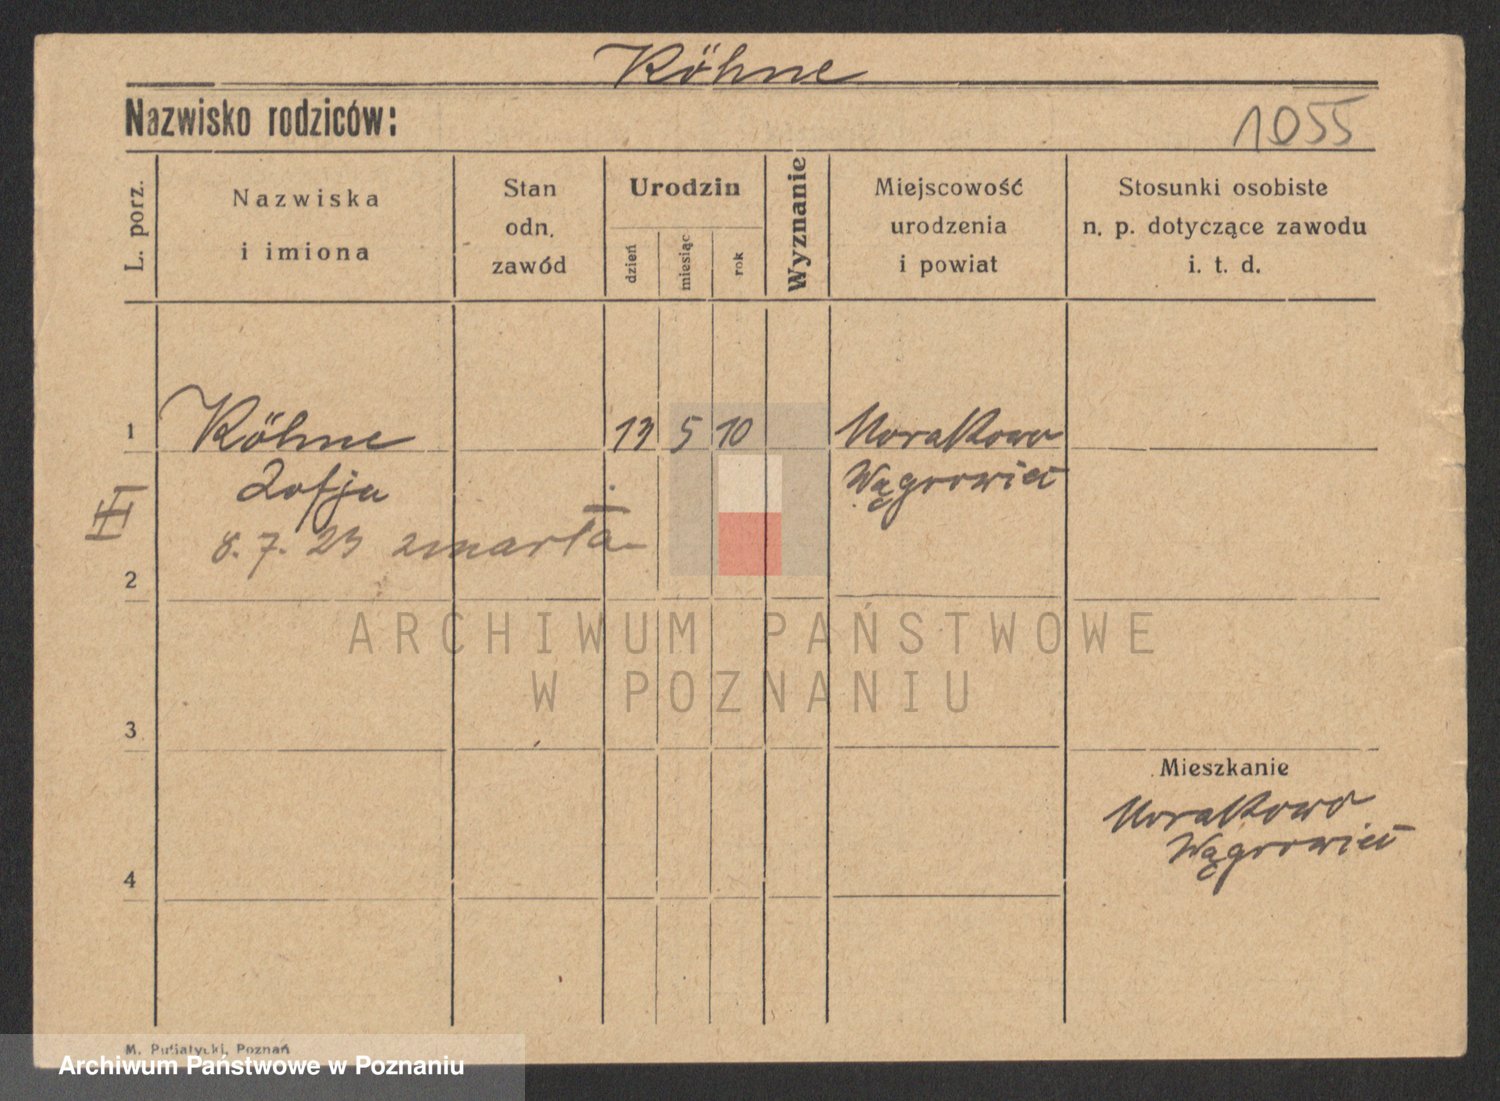 Köhne
Nazwisko rodziców:
1055
L. porz.
Nazwiska
i imiona
Stan
odn.
zawód
Urodzin
dzień
miesiąc
rok
Wyznanie
Miejscowość
urodzenia
i powiat
Stosunki osobiste
n. p. dotyczące zawodu
i. t. d.
1
Köhne
13 5 10
Morakowo
Zofja
Wągrowiec
III
8. 7. 23 zmarła
2
ARCHIWUM PAŃSTWOWE
W POZNANIU
3
Mieszkanie
Morakowo
Wągrowiec
4
M. Putiatycki, Poznań
Archiwum Państwowe w Poznaniu